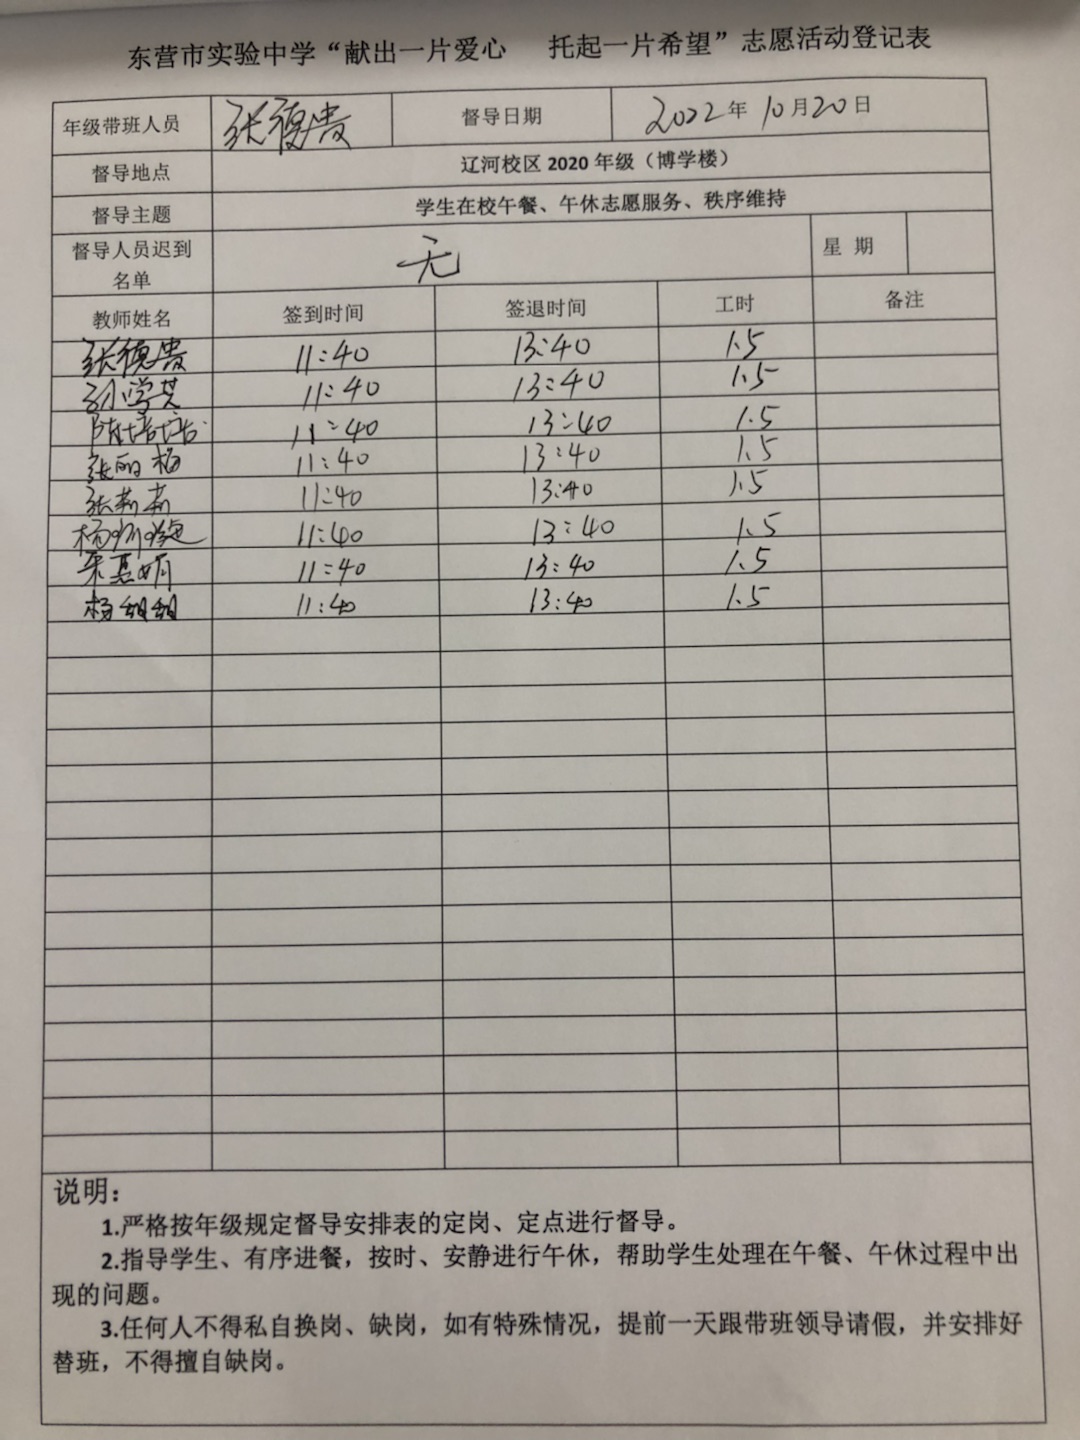 东营市实验中学“献出一片爱心 托起一片希望”志愿活动登记表
年级带班人员 张德贵 督导日期 2022年10月20日
督导地点 辽河校区2020年级（博学楼）
督导主题 学生在校午餐、午休志愿服务、秩序维持
督导人员迟到名单 无 星 期
教师姓名 签到时间 签退时间 工时 备注
张德贵 11:40 13:40 1.5
孙学芝 11:40 13:40 1.5
陈培培 11:40 13:40 1.5
张丽梅 11:40 13:40 1.5
张莉莉 11:40 13:40 1.5
杨 11:40 13:40 1.5
11:40 13:40 1.5
杨甜甜 11:40 13:40 1.5
说明：
1.严格按年级规定督导安排表的定岗、定点进行督导。
2.指导学生、有序进餐，按时、安静进行午休，帮助学生处理在午餐、午休过程中出
现的问题。
3.任何人不得私自换岗、缺岗，如有特殊情况，提前一天跟带班领导请假，并安排好
替班，不得擅自缺岗。